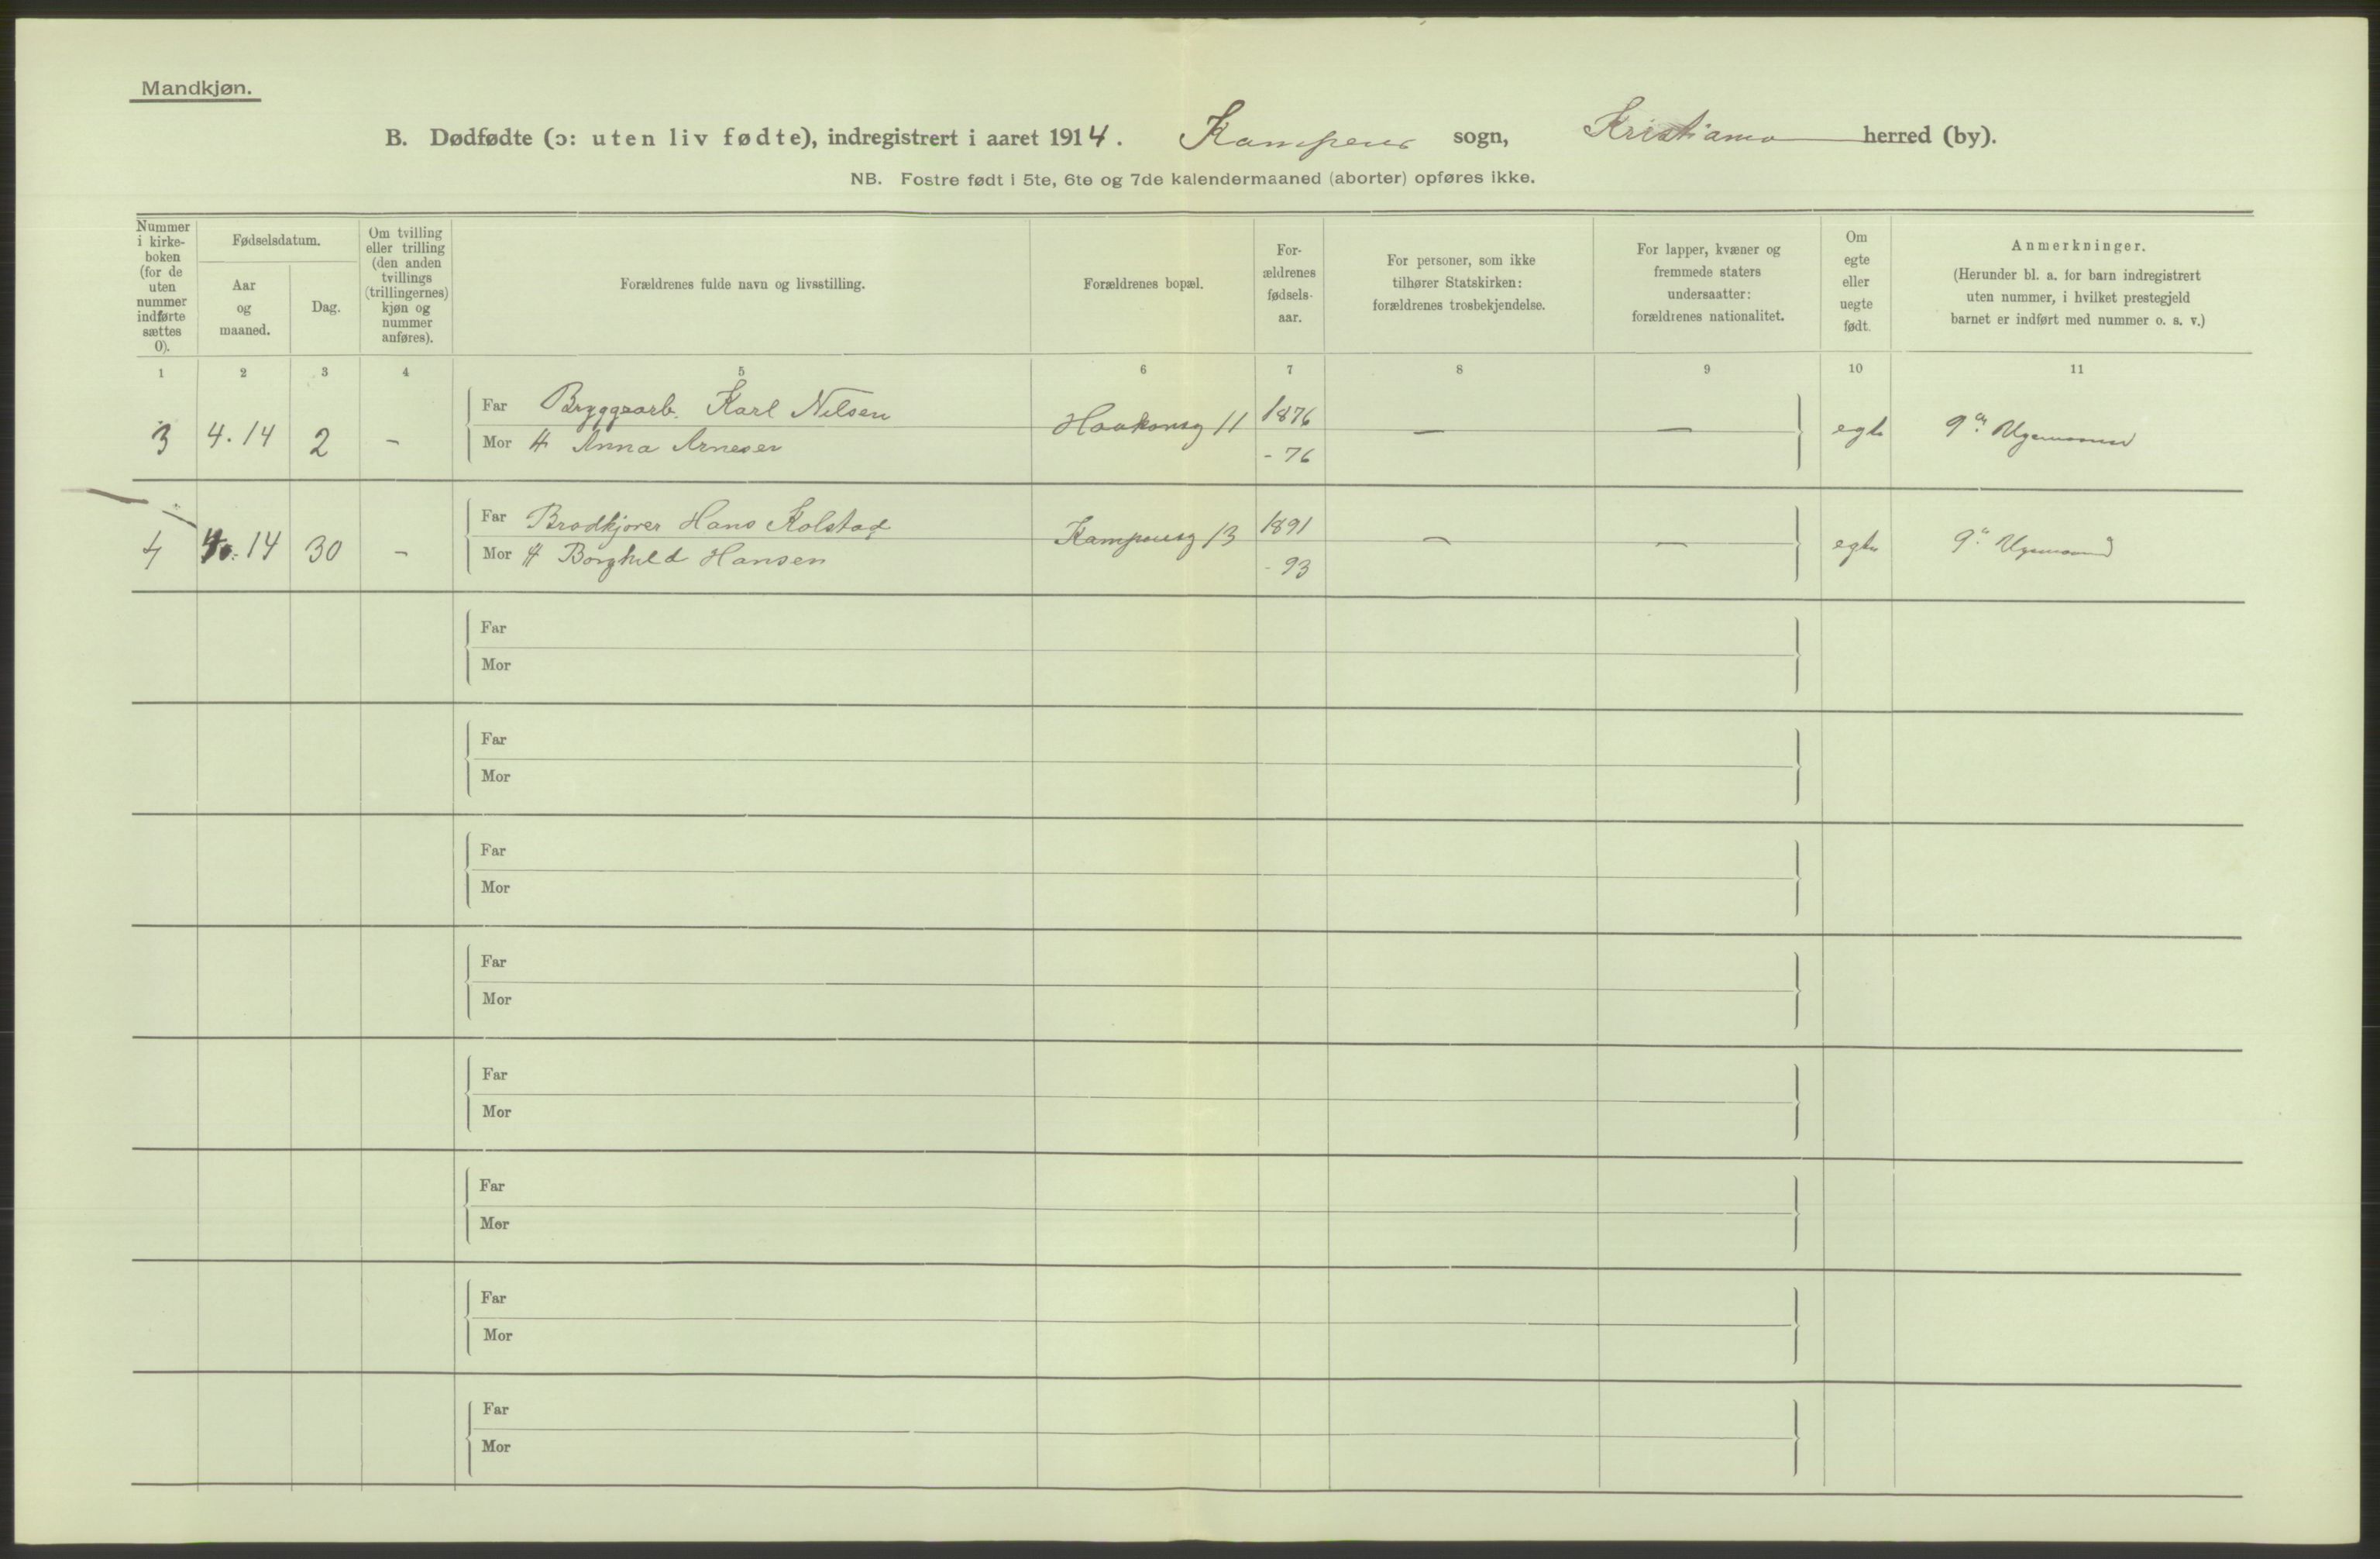 Mandkjøn.
B. Dødfødte (ɔ: uten liv fødte), indregistrert i aaret 1914. Kampens sogn, Kristiania herred (by).
NB. Fostre født i 5te, 6te og 7de kalendermaaned (aborter) opføres ikke.
Nummer
i kirke-
boken
(for de
uten
nummer
indførte
sættes
0).
Fødselsdatum.
Aar
og
maaned.
Dag.
Om tvilling
eller trilling
(den anden
tvillings
(trillingernes)
kjøn og
nummer
anføres).
Forældrenes fulde navn og livsstilling.
Forældrenes bopæl.
For-
ældrenes
fødsels-
aar.
For personer, som ikke
tilhører Statskirken:
forældrenes trosbekjendelse.
For lapper, kvæner og
fremmede staters
undersaatter:
forældrenes nationalitet.
Om
egte
eller
uegte
født.
Anmerkninger.
(Herunder bl. a. for barn indregistrert
uten nummer, i hvilket prestegjeld
barnet er indført med nummer o. s. v.)
1 2 3 4 5 6 7 8 9 10 11
Far Bryggearb. Karl Nilsen 1876
3 4.14 2 – Haakonsg 11 – – egte
Mor H Anna Arnesen - 76
Far Brødkjører Hans Kolstad 1891
4 14 30 – Kampensg 13 – – egte
Mor H Borghild Hansen - 93
Far
Mor
Far
Mor
Far
Mor
Far
Mor
Far
Mor
Far
Mor
Far
Mor
Far
Mor